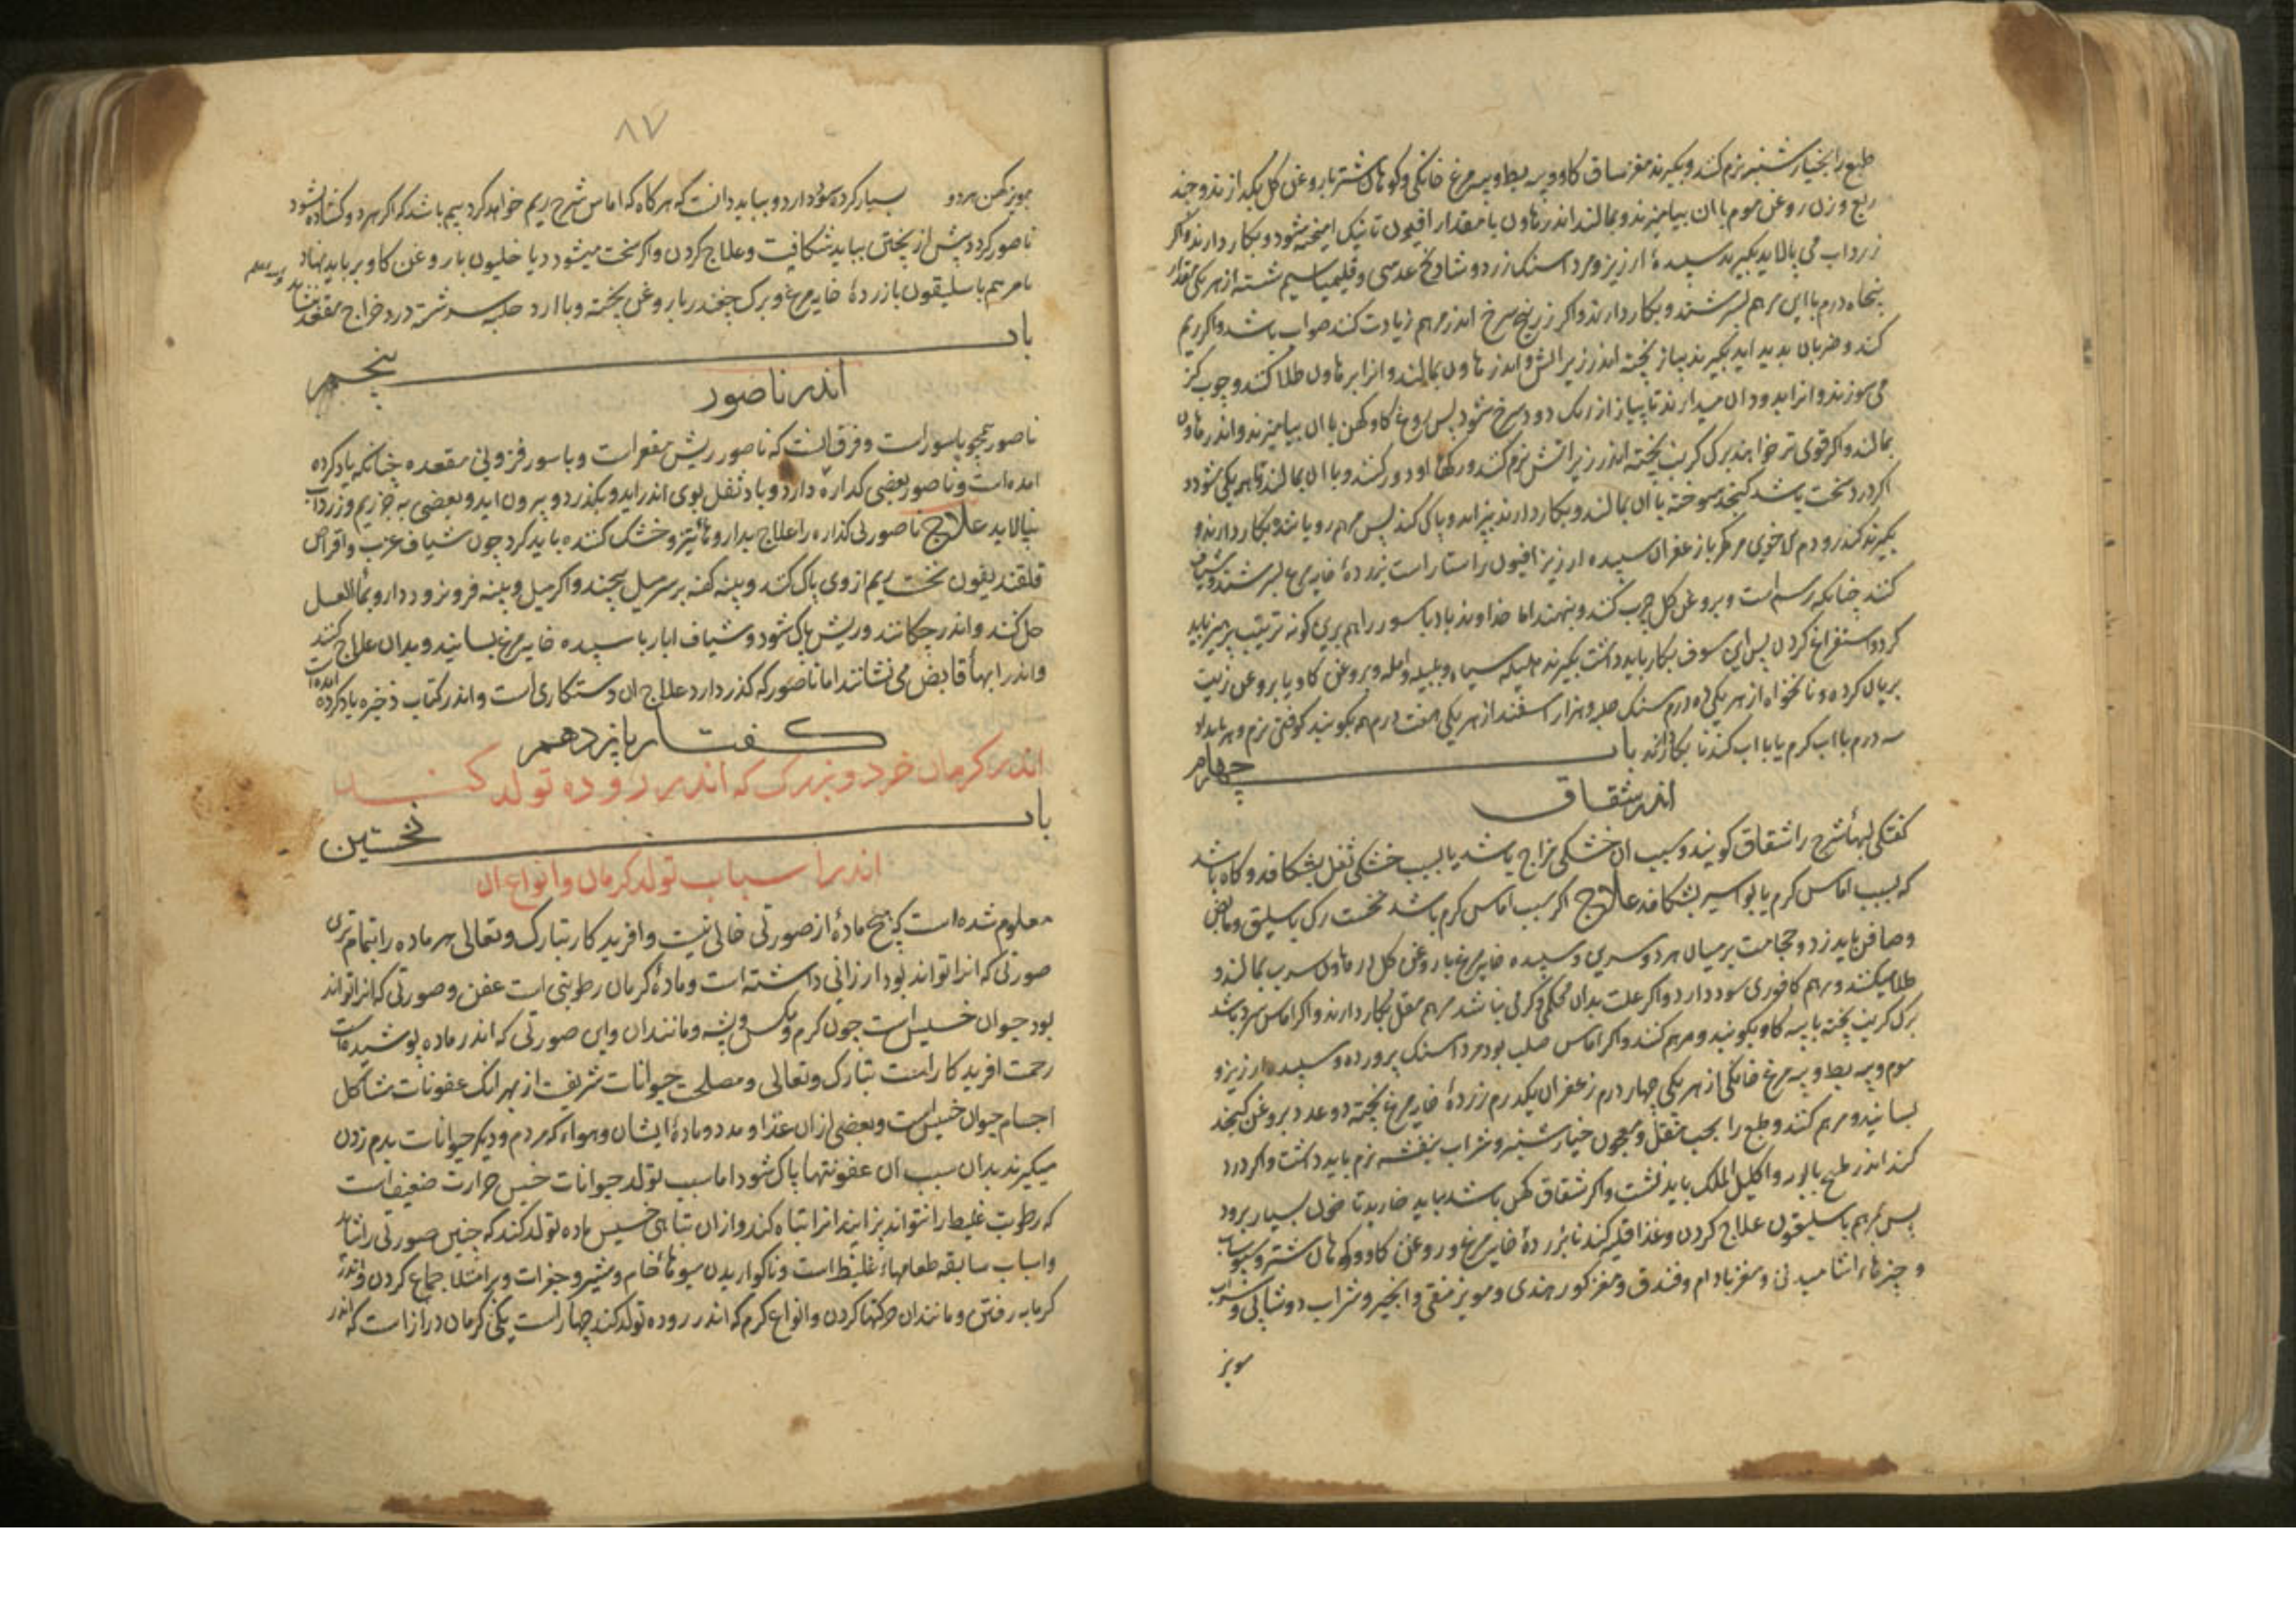 طبع را بخیارشنبر نرم کنند و بکیرند مغز ساق کاو و پیه بط و پیه مرغ خانکی و کوهان شتر با روغن کل بکدازند و چند
ربع وزن روغن موم با ان بیامیزند و بمالند اندر هاون با مقدار افیون تا نیک امیخته شود و بکار دارند و اکر
زرداب می پالاید بکیرند سپیدهٔ ارزیز و مرداسنک زرد و شادنج عدسی و قلیمیا سیم شسته از هر یکی مقدار
پنجاه درم با این مرهم بسرشند و بکار دارند و اکر زرنیخ سرخ اندر مرهم زیادت کنند صواب باشد و اکر ریم
کند و ضربان بدید اید بکیرند پیاز پخته اندر زیر اتش و اندر هاون بمالند و انرا بر هاون طلا کنند و چوب کز
می سوزند و انرا بدود ان میدارند تا پیاز از رنک دود سرخ شود پس روغن کاو کهن با ان بیامیزند و اندر هاون
بمالند و اکر قوی تر خواهند برک کرنب پخته اندر زیر اتش نرم کنند و رکهاء او دور کنند و با ان بمالند تا هم یکی شود و
اکر درد سخت باشد کنجد سوخته با ان بمالند و بکار دارند بپزاند و پاک کند پس مرهم رویاند بکار دارند و
بکیرند کندر و دم الاخوین مر مکر با زعفران سپیده ارزیز افیون راستا راست بزردهٔ خایه مرغ بسرشند و شیاف
کنند چنانکه رسم است و بروغن کل چرب کنند و بنهند اما خداوند باد باسور را هم برین کونه ترتیب پرهیز باید
کرد و استفراغ کردن پس این سفوف بکار باید داشت بکیرند هلیله سیاه و بلیله و امله و بروغن کاو یا بروغن زیت
بریان کرده و نانخواه از هر یکی ده درم سنک حلبه و هزار اسفند از هر یکی هفت درم هم بکوبند کوفتنی نرم و هر بامداد
سه درم با اب کرم یا با اب کندنا بکار دارند باب چهارم
اندر شقاق
کفتکی لبهاء شرج را شقاق کویند و سبب ان خشکی مزاج باشد یا بسبب خشکی ثفل بشکافد و کاه باشد
که بسبب اماس کرم یا بواسیر بشکافد علاج اکر سبب اماس کرم باشد نخست رک باسلیق و مابض
و صافن باید زد و حجامت بر میان هر دو سرین و سپیده خایه مرغ با روغن کل در هاون سرب بمالند و
طلا میکنند و مرهم کافوری سود دارد و اکر علت بدان محکمی و کرمی نباشد مرهم مقل بکار دارند و اکر اماس سرد باشد
برک کرنب پخته با پیه کاو بکوبند و مرهم کنند و اکر اماس صلب بود مرداسنک پرورده و سپیده ارزیز و
موم و پیه بط و پیه مرغ خانکی از هر یکی چهار درم زعفران یکدرم زردهٔ خایه مرغ پخته دو عدد بروغن کنجد
بسایند و مرهم کنند و طبع را بحب مقل و معجون خیارشنبر و شراب بنفشه نرم باید داشت و اکر درد
کند اندر طبیخ بابونه و اکلیل الملک باید نشست و اکر شقاق کهن باشد بباید خارید تا خون بسیار برود
پس بمرهم باسلیقون علاج کردن و غذا قلیه کندنا بزردهٔ خایه مرغ و روغن کاو و کوهان شتر و
و چیزهاء اشامیدنی و مغز بادام و فندق و مغز کوز هندی و مویز منقی و انجیر و شراب دوشابی و
مویز
۸۷
بمویز کهن هر دو بسیار کرده سود دارد و بباید دانست که هر کاه که اماس شرج ریم خواهد کرد بیم باشد که اکر هر دو کشاده شود
ناصور کردد پیش از پختن بباید شکافت و علاج کردن و اکر سخت میشود دیاخلیون با روغن کاو بر باید نهاد
یا مرهم باسلیقون با زردهٔ خایه مرغ و برک چغندر با روغن پخته و با ارد حلبه سرشته در خراج مقعد
باب پنجم
اندر ناصور
ناصور همچو باسور است و فرق انست که ناصور ریش مقعر است و باسور فزونی مقعده چنانکه یاد کرده
امده است و ناصور بعضی کذاره دارد و باد ثفل بوی اندر اید و بکذرد و بیرون اید و بعضی به جز ریم و زرداب
نپالاید علاج ناصور بی کذاره را علاج بداروهاء تیز و خشک کننده باید کرد چون شیاف غرب و اقراص
قلقندیقون نخست ریم از وی پاک کنند و پنبه کهنه بر سر میل پیچند و اکر میل و پنبه فرو نرود دارو بماء العسل
حل کنند و اندر چکانند و ریش پاک شود و شیاف ابار با سپیده خایه مرغ بسایند و بدان علاج کنند
و اندر ابهاء قابض می نشانند اما ناصور که کذر دارد علاج ان دستکاری است و اندر کتاب ذخیره یاد کرده امده است
کفتار یازدهم
اندر کرمان خرد و بزرک که اندر روده تولد کنند
باب نخستین
اندر اسباب تولد کرمان و انواع ان
معلوم شده است که هیچ مادهٔ از صورتی خالی نیست و افریدکار تبارک و تعالی هر ماده را بتمام ترین
صورتی که انرا تواند بود ارزانی داشته است و مادهٔ کرمان رطوبتی است عفن و صورتی که انرا تواند
بود حیوان خسیس است چون کرم و مکس و پشه و مانند ان و این صورتی که اندر ماده پوشیده است
رحمت افریدکار است تبارک و تعالی و مصلحت حیوانات شریف از بهر انک عفونات مشاکل
اجسام حیوان خسیس است و بعضی از ان غذا و مدد و مادهٔ ایشان و هواء که مردم و دیکر حیوانات بدم زدن
میکیرند بدان سبب از ان عفونتها پاک شود اما سبب تولد حیوانات خسیس حرارت ضعیف است
که رطوبت غلیظ را نتواند پزانید انرا تباه کند و از ان تباهی خسیس ماده تولد کند که چنین صورتی را شاید
و اسباب سابقه طعامهاء غلیظ است و ناکواریدن میوهاء خام و شیر و جغرات و بر امتلا جماع کردن و اندر
کرمابه رفتن و مانند ان حرکتها کردن و انواع کرم که اندر روده تولد کند چهار است یکی کرمان دراز است که اندر